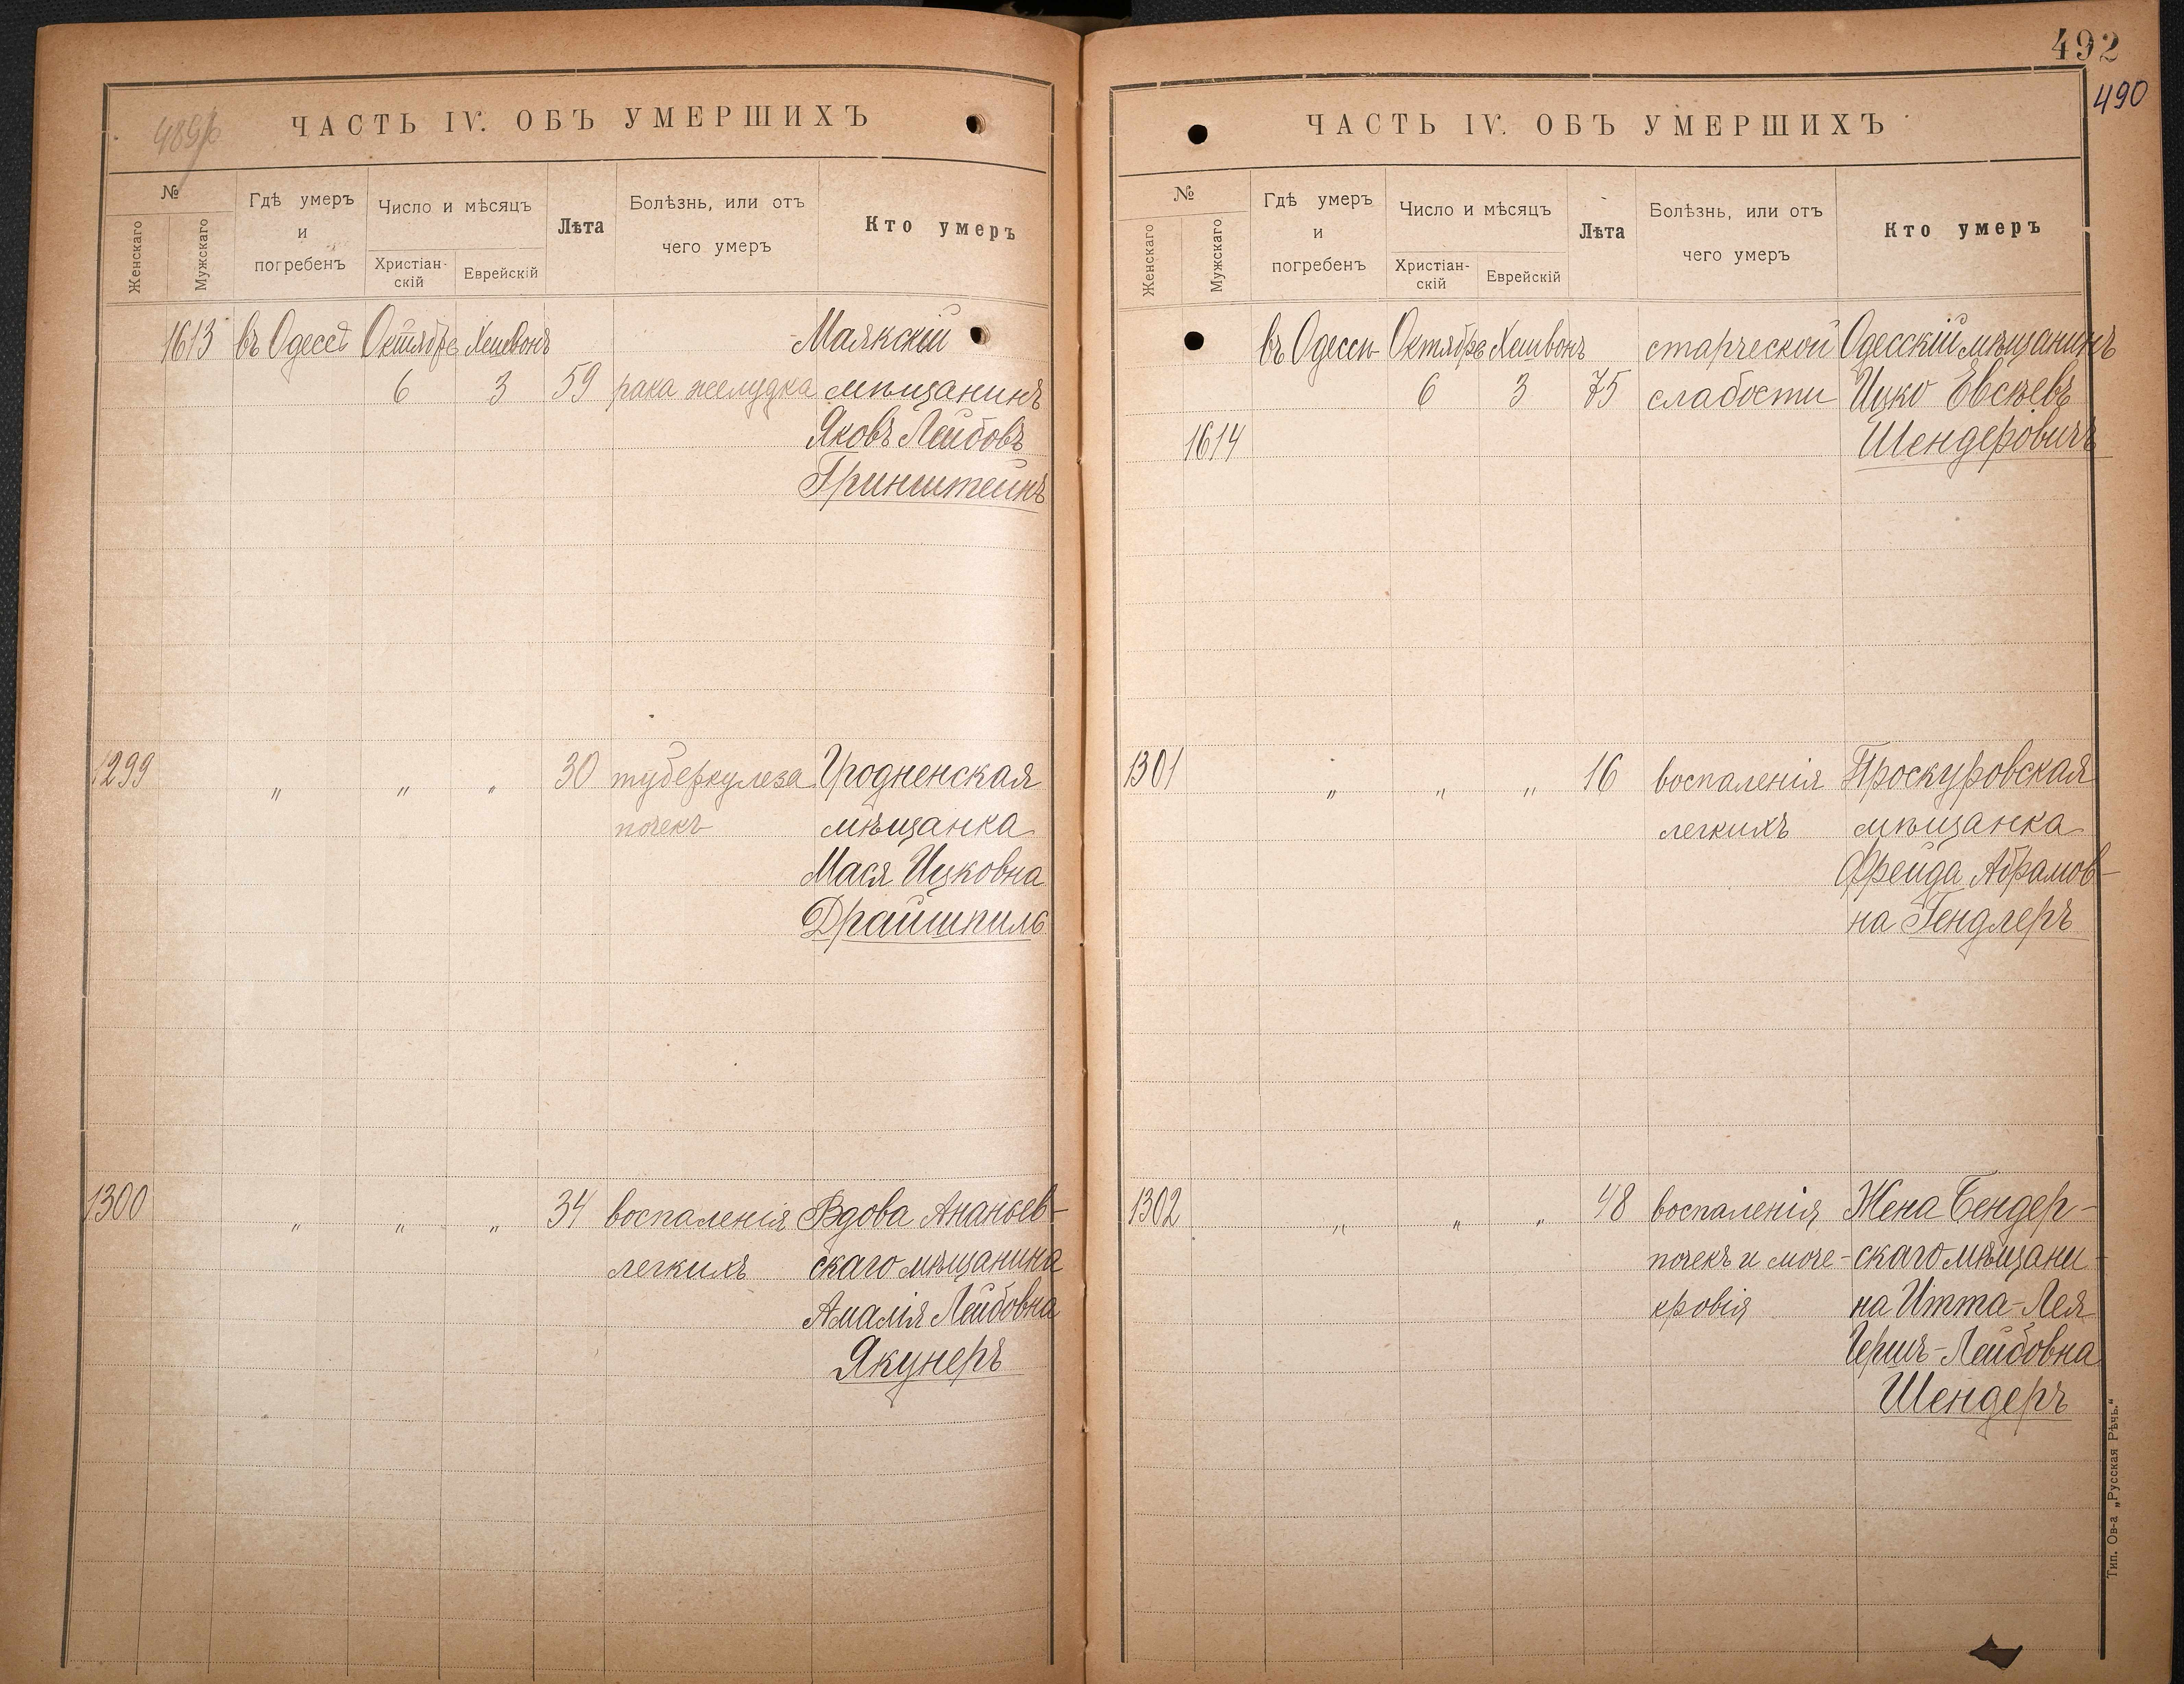 489/б
ЧАСТЬ IV. ОБЪ УМЕРШИХЪ
№
Женскаго
Мужскаго
Гдѣ умеръ
и
погребенъ
Число и мѣсяцъ
Христіан-
скій
Еврейскій
Лѣта
Болѣзнь, или отъ
чего умеръ
Кто умеръ
1613 въ Одессѣ Октября Хешвонъ Маякскій
6 3 59 рака желудка мѣщанинъ
Яковъ Лейбовъ
Гринштейнъ
1299 " " " 30 туберкулеза Гродненская
почекъ мѣщанка
Мася Ицковна
Драйшпиль
1300 " " " 34 воспаленія Вдова Ананьев-
легкихъ скаго мѣщанина
Амалія Лейбовна
Якунеръ
492
490
ЧАСТЬ IV. ОБЪ УМЕРШИХЪ
№
Женскаго
Мужскаго
Гдѣ умеръ
и
погребенъ
Число и мѣсяцъ
Христіан-
скій
Еврейскій
Лѣта
Болѣзнь, или отъ
чего умеръ
Кто умеръ
въ Одессѣ Октября Хешвонъ старческой Одесскій мѣщанинъ
6 3 75 слабости Ицко Евсѣевъ
1614 Шендеровичъ
1301 " " " 16 воспаленія Проскуровская
легкихъ мѣщанка
Фрейда Абрамов-
на Гендлеръ
1302 " " " 48 воспаленія Жена Бендер-
почекъ и моче- скаго мѣщани-
кровія на Итта-Лея
Гершъ-Лейбовна
Шендеръ
Тип. Ов-а „Русская Рѣчь."